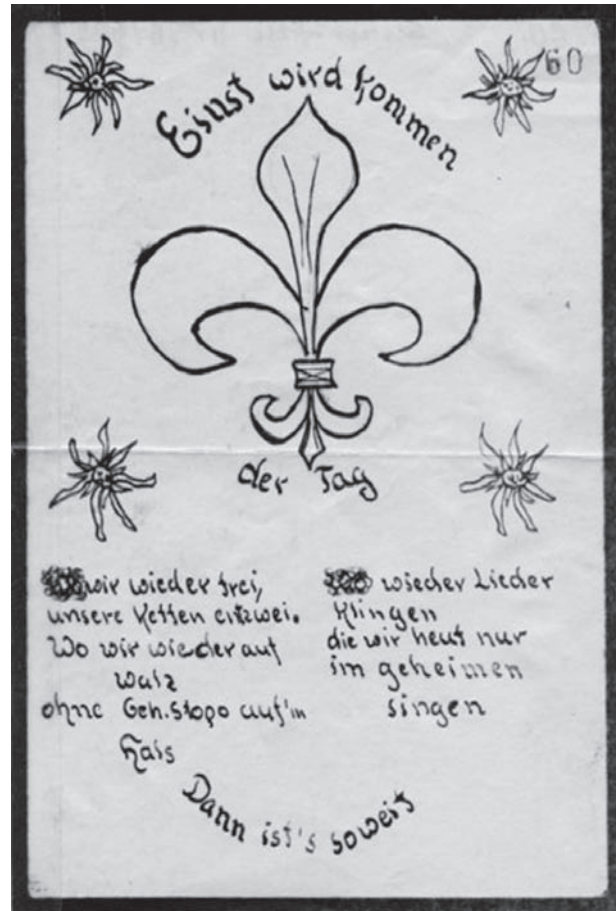 60
Einst wird kommen
der Tag
wir wieder frei,
unsere Ketten entzwei.
Wo wir wieder auf
Walz
ohne Geh.Stapo auf'm
Hals
wieder Lieder
Klingen
die wir heut nur
im geheimen
singen
Dann ist's soweit